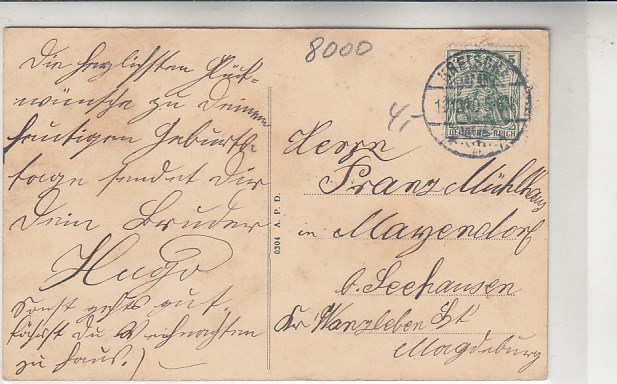 8000
4,-
Die herzlichsten Glück-
wünsche zu Deinem
heutigen Geburts-
tage sendet Dir
Dein Bruder
Hugo
Sonst gehts gut
Du Weihnachten
zu Haus.)
0304 A. P. D.
5
DEUTSCHES REICH
Herrn
Franz Mühlhaus
in Mayendorf
b. Seehausen
Kr Wanzleben Bz
Magdeburg